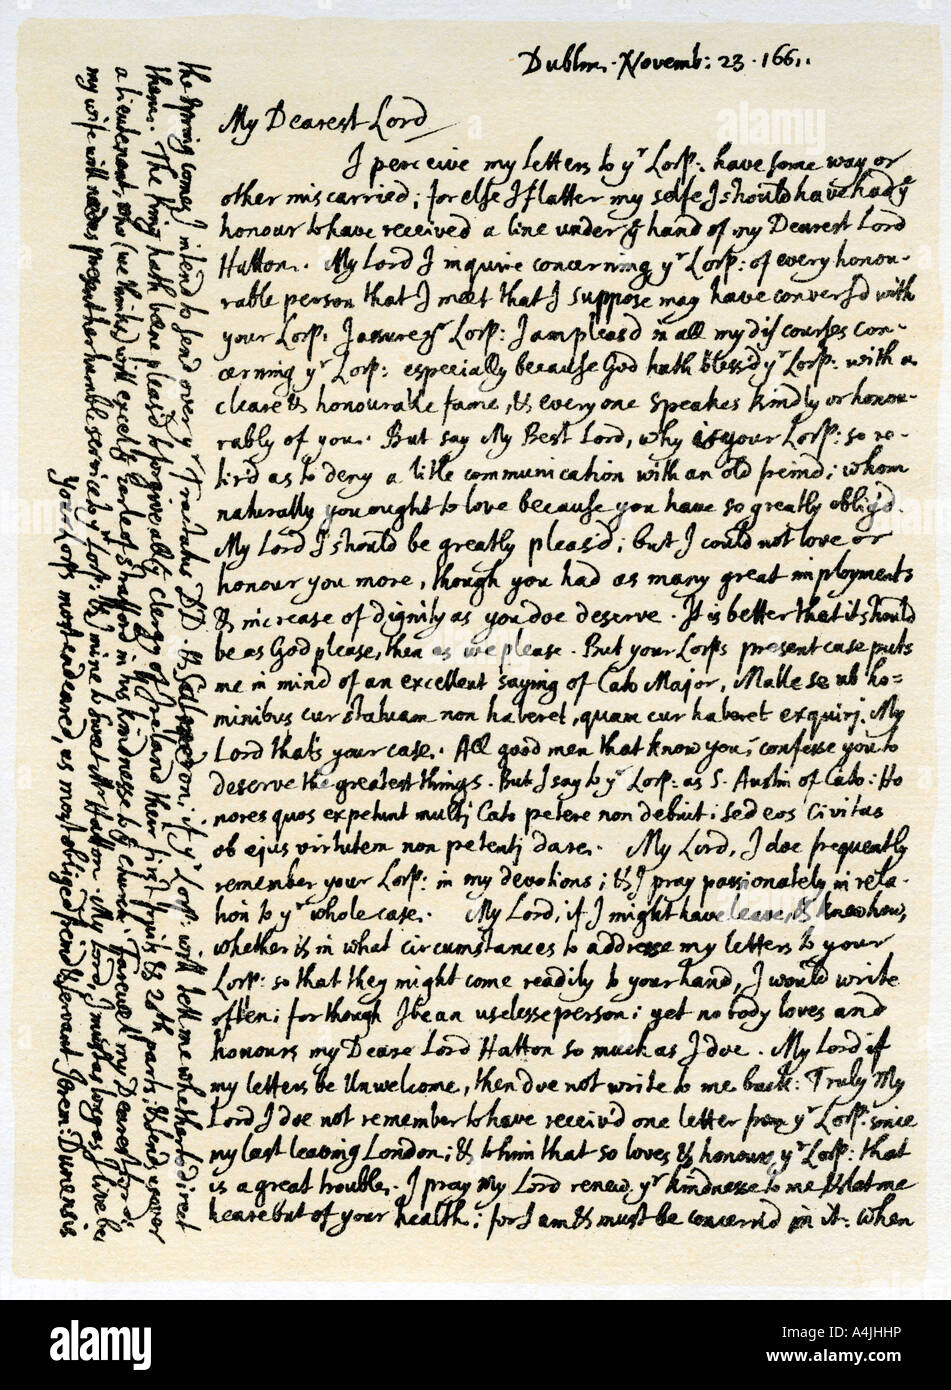 Dublin. Novemb: 23. 166..
My Dearest Lord
I perceive my letters to yr Lorp: have some way or
other miscarried; for else I flatter my selfe I should have had ye
honour to have received a line under ye hand of my Dearest Lord
Hatton. My Lord I inquire concerning yr Lorp: of every honou-
rable person that I meet that I suppose may have convers'd with
your Lorp. I assure yr Lorp: I am pleas'd in all my discourses con-
cerning yr Lorp: especially because God hath bless'd yr Lorp: with a
cleare & honourable fame, & every one speakes kindly or honou-
rably of you. But say My Best Lord, why is your Lorp: so re-
tir'd as to deny a little communication with an old freind; whom
naturally you ought to love because you have so greatly oblig'd.
My Lord I should be greatly pleas'd; but I could not love or
honour you more, though you had as many great imployments
& increase of dignity as you doe deserve. It is better that it should
be as God please, then as we please. But your Lorps present case puts
me in mind of an excellent saying of Cato Major, Malle se ub ho=
minibus cur statuam non haberet, quam cur haberet exquiri. My
Lord that's your case. All good men that know you, confesse you to
deserve the greatest things. But I say to yr Lorp: as S. Austin of Cato: Ho
nores quos expetunt multi Cato petere non debuit; sed eos Civitas
ob ejus virtutem non petenti dare. My Lord, I doe frequently
remember your Lorp: in my devotions; & I pray passionately in rela-
tion to yr whole case. My Lord, if I might have leave, & knew how,
whether & in what circumstances to addresse my letters to your
Lorp: so that they might come readily to your hand, I would write
often; for though I be an uselesse person; yet no body loves and
honours my Deare Lord Hatton so much as I doe. My Lord if
my letters be Unwelcome, then doe not write to me back: Truly My
Lord I doe not remember to have receiv'd one letter from yr Lorp: since
my last leaving London; & to him that so loves & honours yr Lorp: that
is a great trouble. I pray My Lord renew yr kindnesse to me & let me
heare but of your health; for I am & must be concern'd in it: when
the spring comes I intend to send over yr Tractatus DD. & Salmeron, if yr Lorp: will let me whether to direct
them. The king hath bene pleas'd to forgive all ye clergy of Ireland their first fruits & 20th parts; & sends over
a lieutenant, who (we thinke) will excell ye earle of Strafford in his kindnesse to ye church. Farewell my Dearest Lord;
my wife will needes present her humble service to yr Lorp: & mine to sweet Mr Hatton. My Lord, I must as long as I live be,
your Lorps most endeared, as most obliged freind & servant Jerem: Dunensis
alamy
Image ID: A4JHHP
www.alamy.com